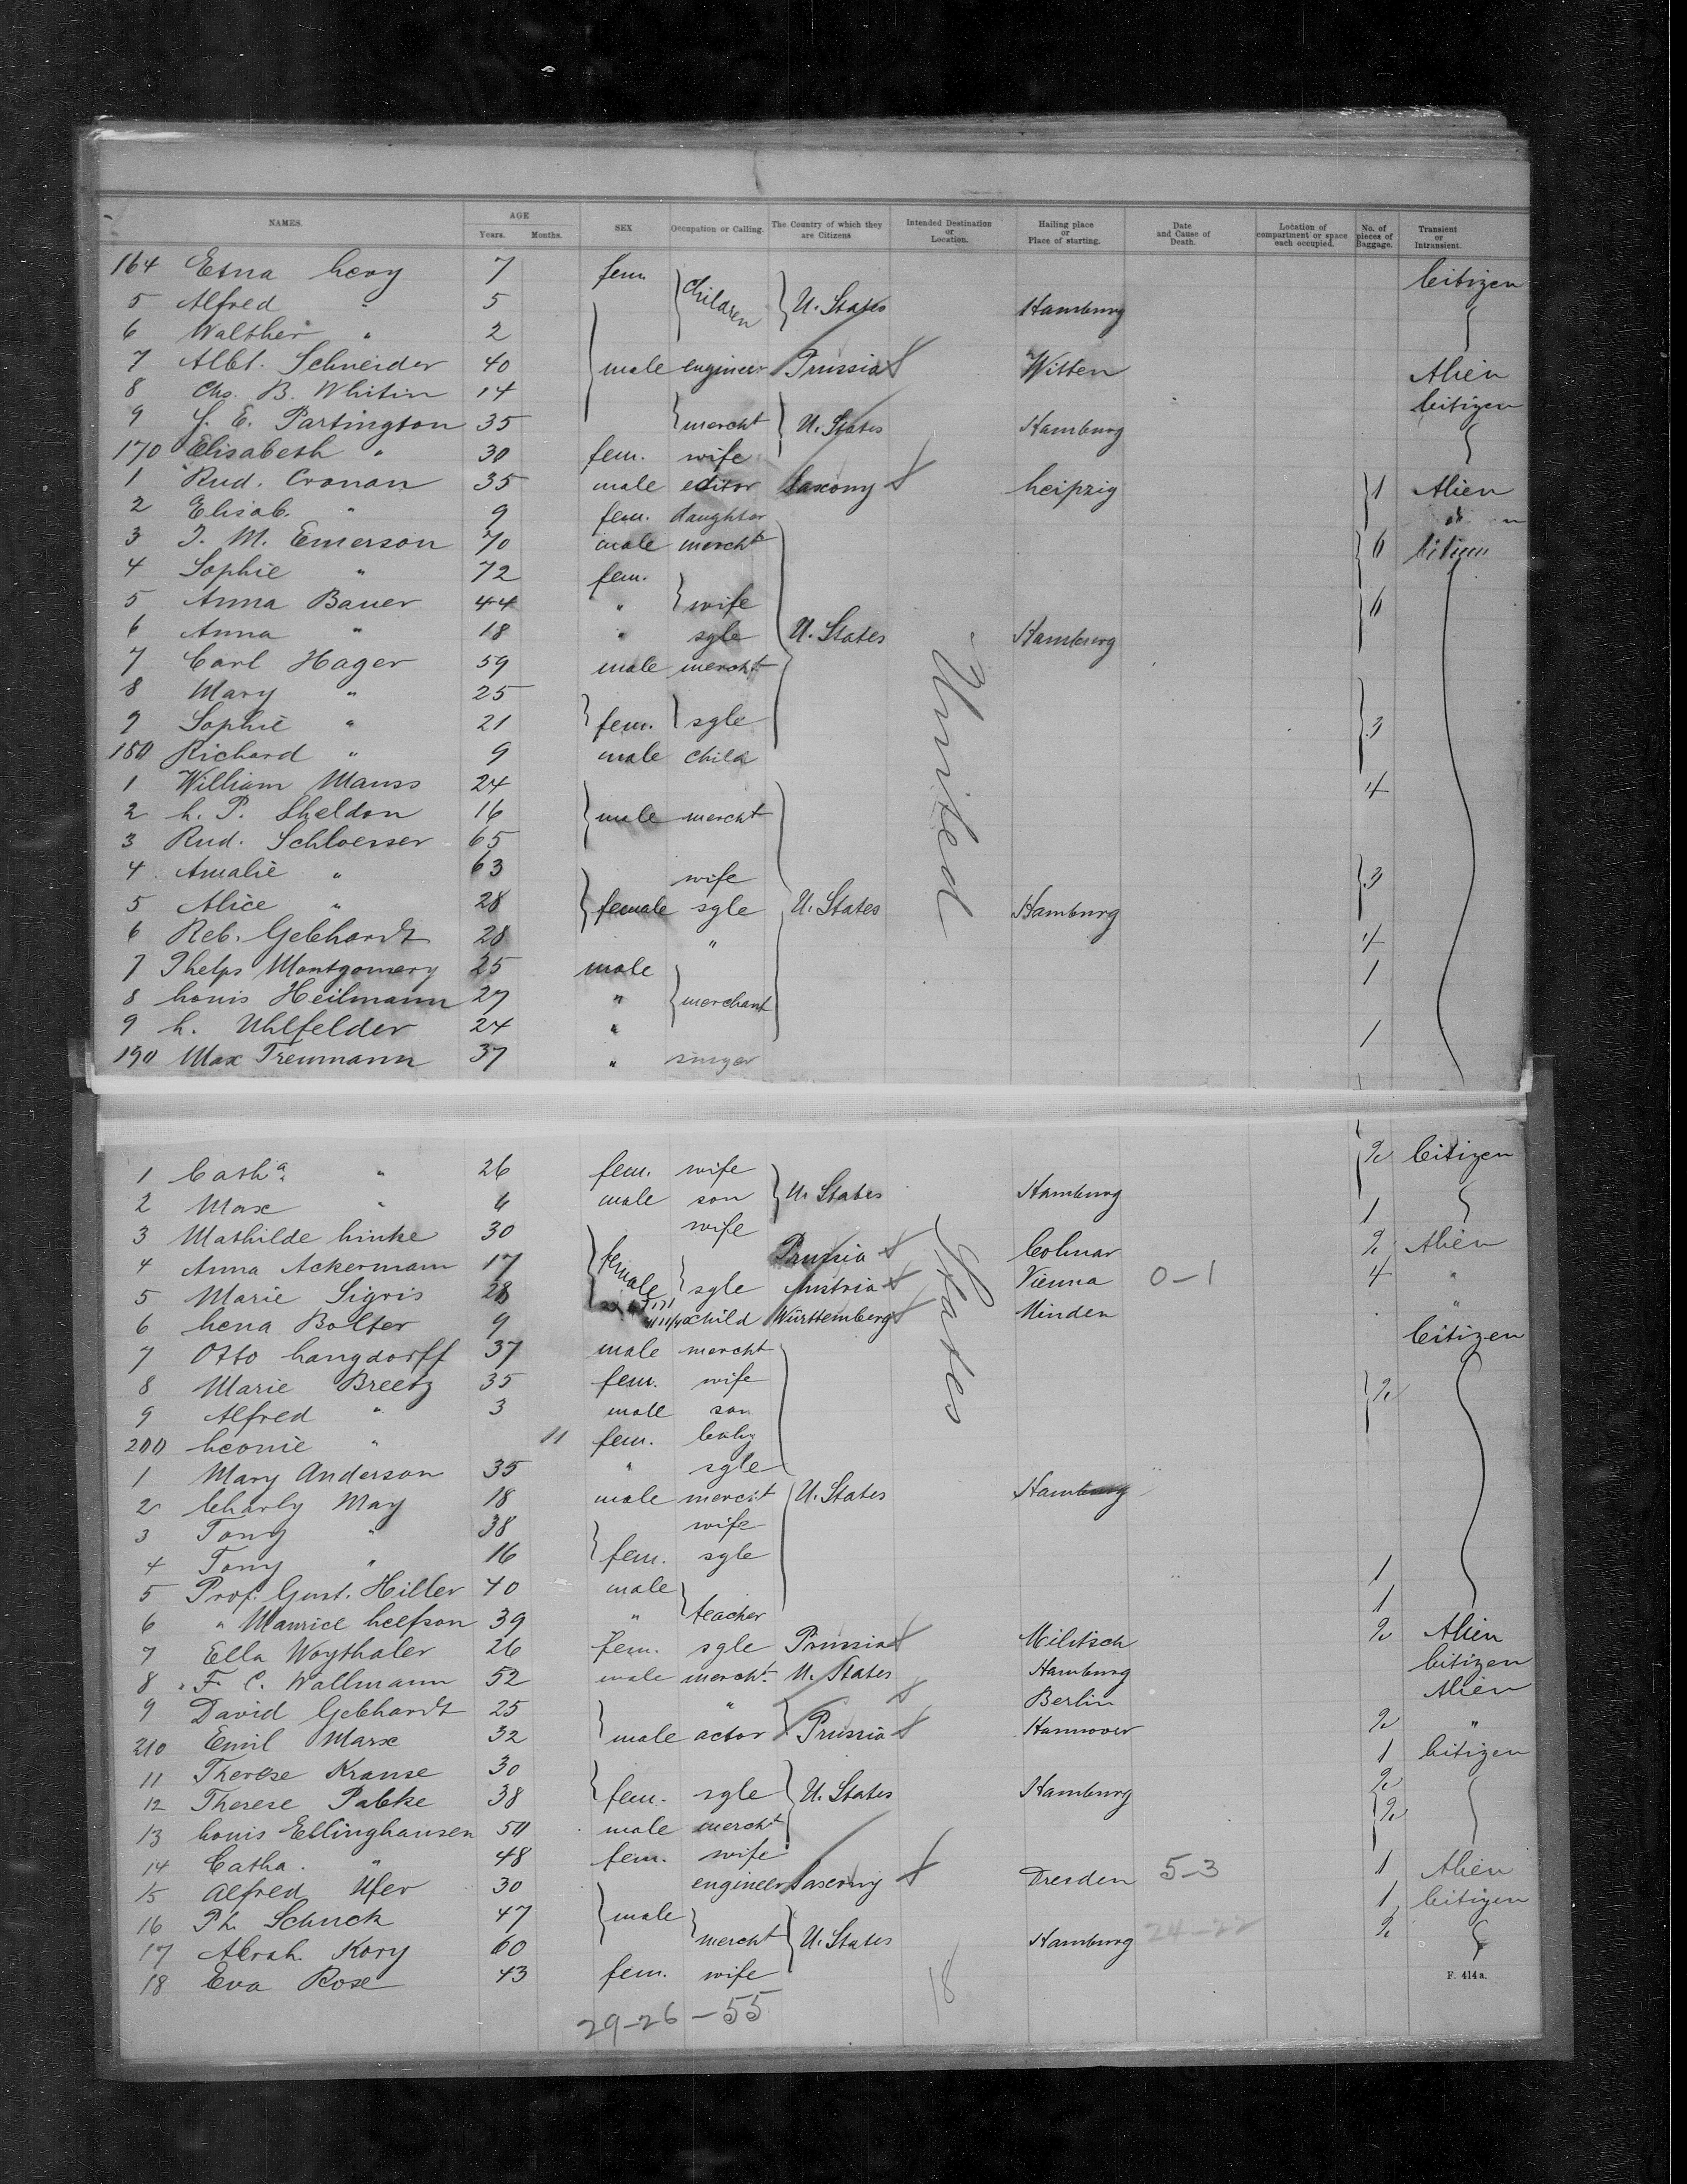 NAMES. AGE Years. Months. SEX Occupation or Calling. The Country of which they are Citizens Intended Destination or Location. Hailing place or Place of starting. Date and Cause of Death. Location of compartment or space each occupied. No. of pieces of Baggage. Transient or Intransient.
164 Etna Levy 7 fem. Citizen
5 Alfred " 5 children U. States Hamburg
6 Walther " 2
7 Albt. Schneider 40 male engineer Prussia Witten Alien
8 Chs. B. Whitin 14 Citizen
9 J. E. Partington 35 mercht U. States Hamburg
170 Elisabeth " 30 fem. wife
1 Rud. Cronan 35 male editor Saxony Leipzig 1 Alien
2 Elisab. " 9 fem. daughter
3 J. M. Emerson 70 male mercht 6 Citizen
4 Sophie " 72 fem.
5 Anna Bauer 44 " wife 6
6 Anna " 18 " sgle U. States Hamburg
7 Carl Hager 59 male mercht
8 Mary " 25
9 Sophie " 21 fem. sgle 3
180 Richard " 9 male child
1 William Mauss 24 4
2 L. P. Sheldon 16 male mercht
3 Rud. Schloesser 65
4 Amalie " 63 wife 3
5 Alice " 28 female sgle U. States Hamburg
6 Reb. Gebhardt 28 " 4
7 Phelps Montgomery 25 male 1
8 Louis Heilmann 27 " merchant
9 L. Uhlfelder 24 " 1
190 Max Treumann 37 " singer
United
1 Catha. " 26 fem. wife 2 Citizen
2 Max " 6 male son U. States Hamburg 1
3 Mathilde Linke 30 wife Prussia Colmar 2 Alien
4 Anna Ackermann 17 female sgle Austria Vienna 0-1 4 "
5 Marie Sigris 28 "
6 Lena Bolter 9 child Württemberg Minden
7 Otto Langdorff 37 male mercht Citizen
8 Marie Breetz 35 fem. wife 2
9 Alfred " 3 male son
200 Leonie " 11 fem. baby
1 Mary Anderson 35 " sgle
2 Charly May 18 male mercht U. States Hamburg
3 Tony " 38 wife
4 Tony " 16 fem. sgle 1
5 Prof. Gust. Hiller 40 male 1
6 " Maurice Leefson 39 " teacher
7 Ella Woythaler 26 fem. sgle Prussia Militsch 2 Alien
8 F. C. Wallmann 52 male mercht. U. States Hamburg Citizen
9 David Gebhardt 25 " Berlin Alien
210 Emil Marx 32 male actor Prussia Hannover 2 "
11 Therese Krause 30 1 Citizen
12 Therese Pabke 38 fem. sgle U. States Hamburg 2
13 Louis Ellinghausen 50 male mercht 2
14 Catha. " 48 fem. wife
15 Alfred Ufer 30 engineer Saxony Dresden 5-3 1 Alien
16 Ph. Schuck 47 male 1 Citizen
17 Abrah. Kory 60 mercht U. States Hamburg 24-22 2
18 Eva Rose 43 fem. wife
States
F. 414a.
29-26-55
18